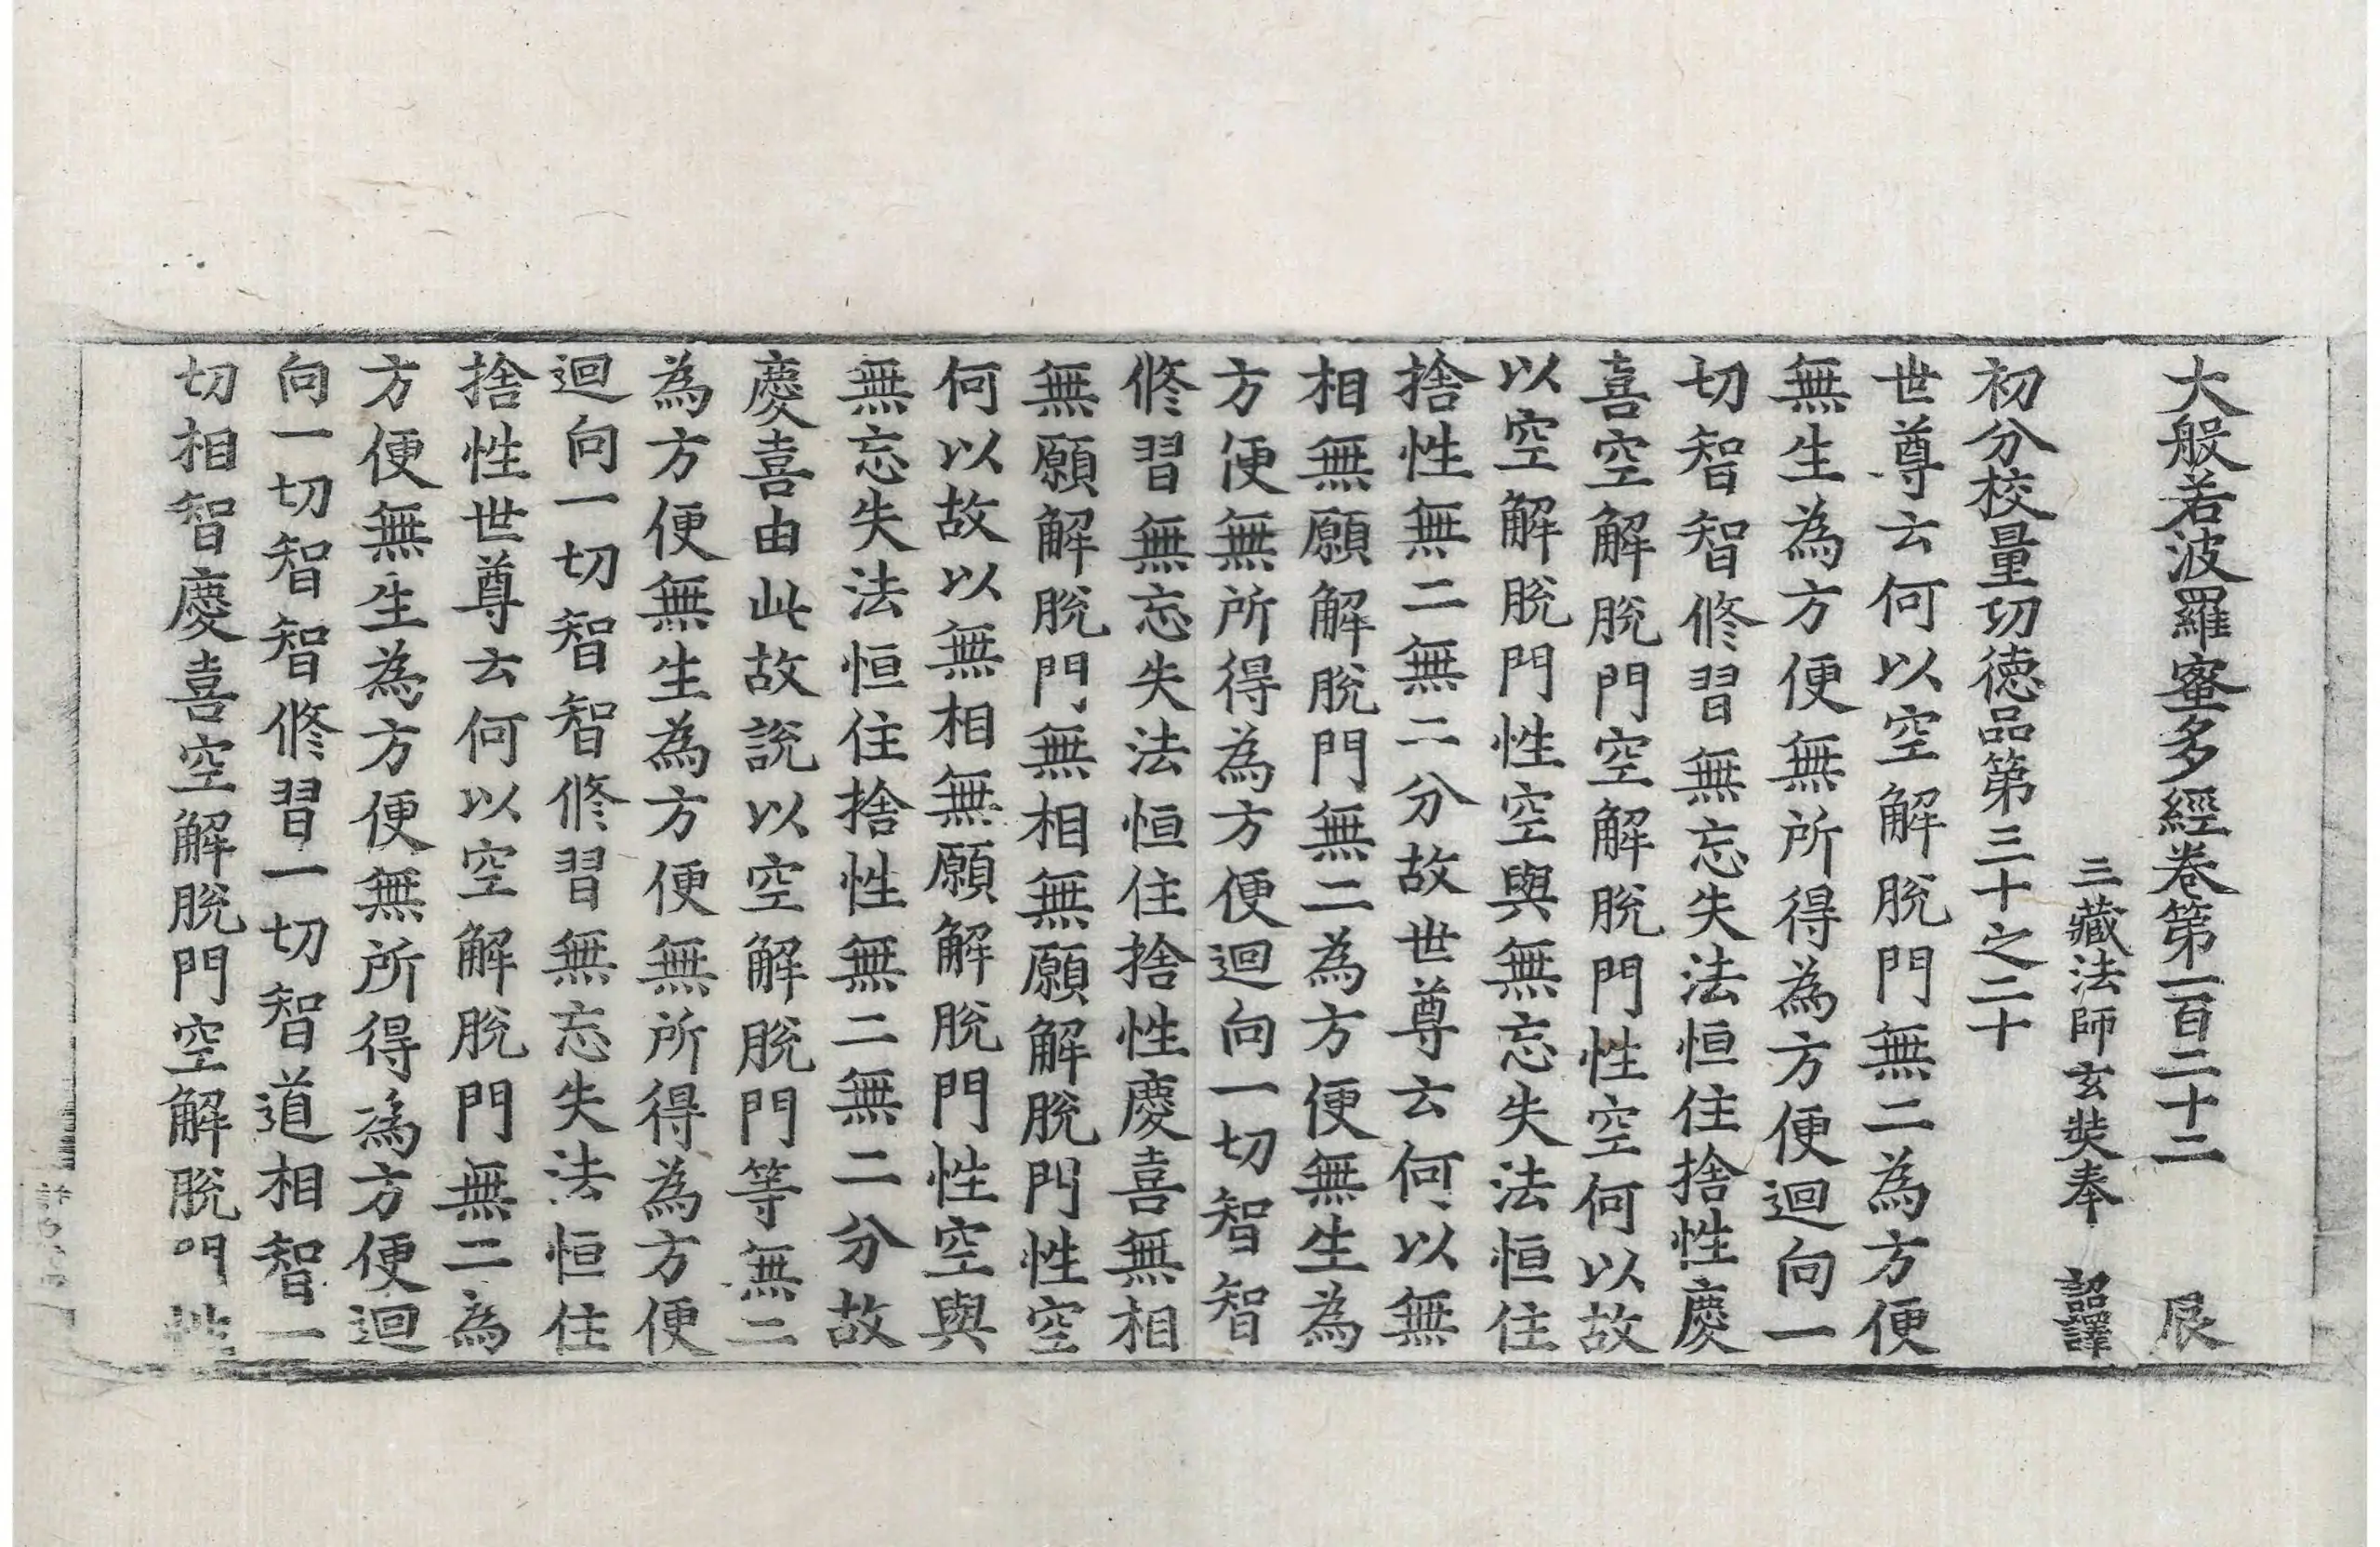 大般若波羅蜜多經卷第一百二十二 㞋
三藏法師玄奘奉 詔譯
初分校量功徳品第三十之二十
世尊云何以空解脫門無二為方便
無生為方便無所得為方便迴向一
切智智修習無忘失法恒住捨性慶
喜空解脫門空解脫門性空何以故
以空解脫門性空與無忘失法恒住
捨性無二無二分故世尊云何以無
相無願解脫門無二為方便無生為
方便無所得為方便迴向一切智智
修習無忘失法恒住捨性慶喜無相
無願解脫門無相無願解脫門性空
何以故以無相無願解脫門性空與
無忘失法恒住捨性無二無二分故
慶喜由此故說以空解脫門等無二
為方便無生為方便無所得為方便
迴向一切智智修習無忘失法恒住
捨性世尊云何以空解脫門無二為
方便無生為方便無所得為方便迴
向一切智智修習一切智道相智一
切相智慶喜空解脫門空解脫門性